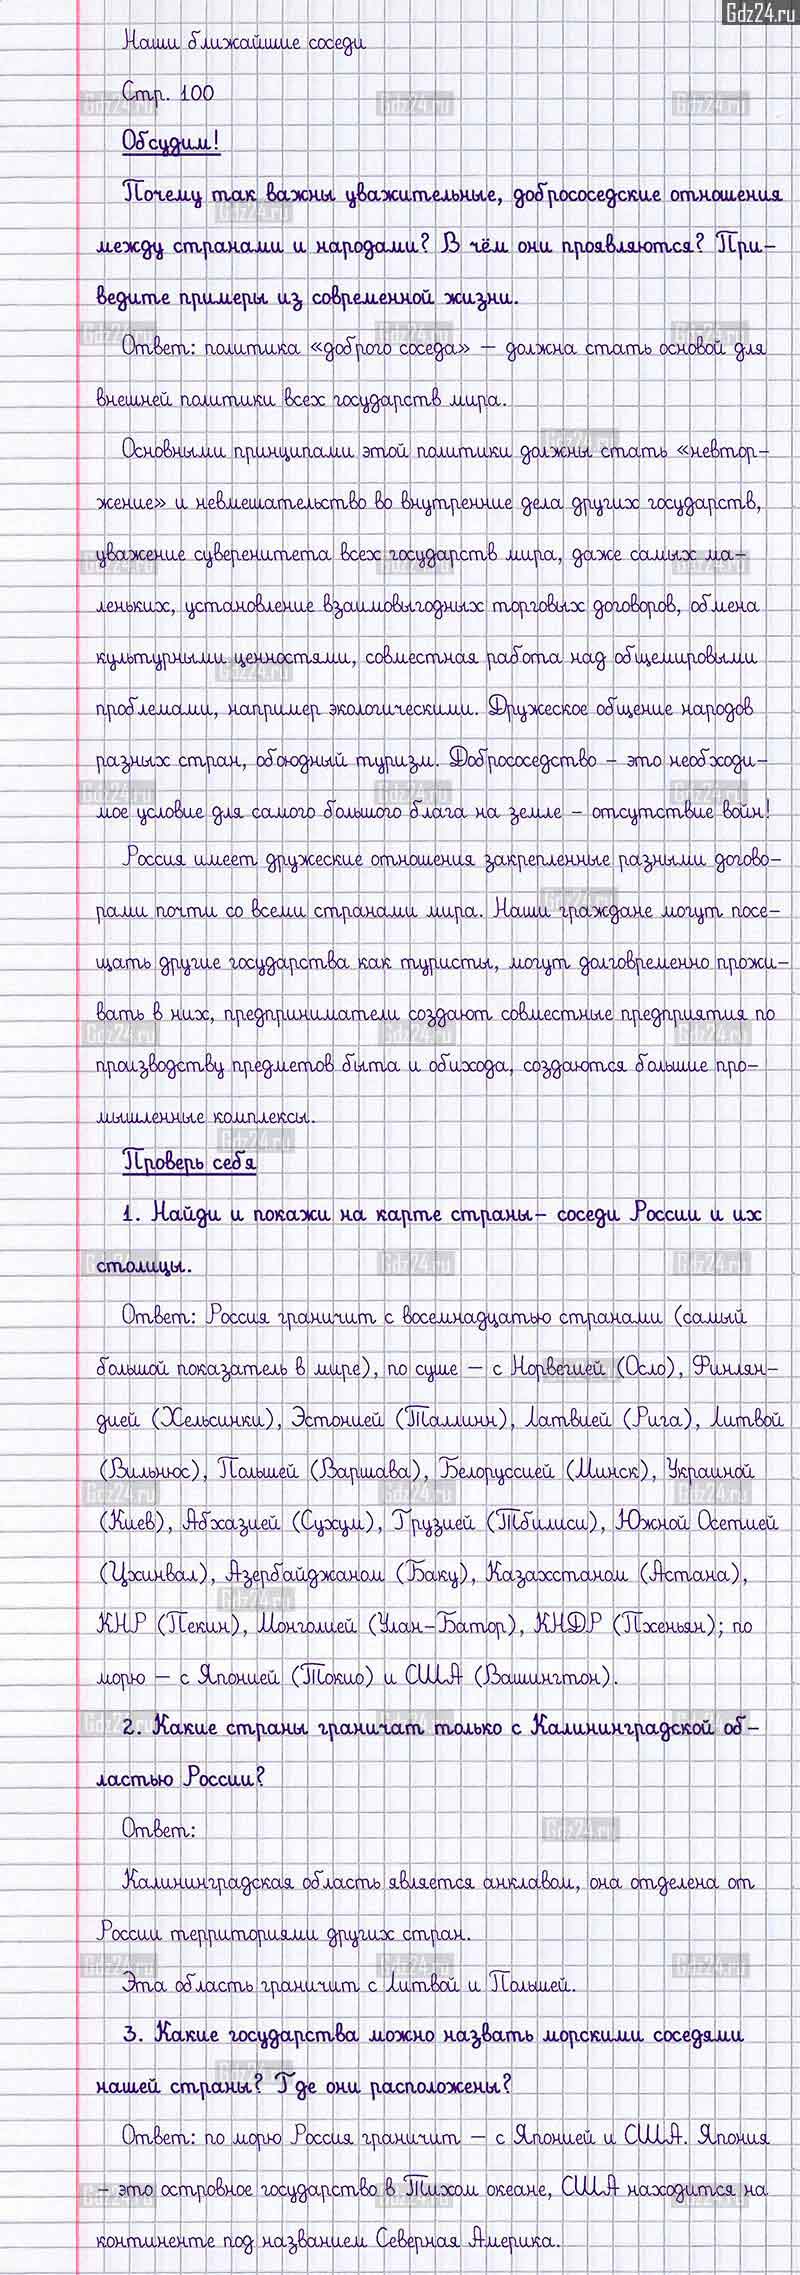 Gdz24.ru
Наши ближайшие соседи
Стр. 100
Обсудим!
Почему так важны уважительные, добрососедские отношения
между странами и народами? В чём они проявляются? При-
ведите примеры из современной жизни.
Ответ: политика «доброго соседа» – должна стать основой для
внешней политики всех государств мира.
Основными принципами этой политики должны стать «невтор-
жение» и невмешательство во внутренние дела других государств,
уважение суверенитета всех государств мира, даже самых ма-
леньких, установление взаимовыгодных торговых договоров, обмена
культурными ценностями, совместная работа над общемировыми
проблемами, например экологическими. Дружеское общение народов
разных стран, обоюдный туризм. Добрососедство – это необходи-
мое условие для самого большого блага на земле – отсутствие войн!
Россия имеет дружеские отношения закрепленные разными догово-
рами почти со всеми странами мира. Наши граждане могут посе-
щать другие государства как туристы, могут долговременно прожи-
вать в них, предприниматели создают совместные предприятия по
производству предметов быта и обихода, создаются большие про-
мышленные комплексы.
Проверь себя
1. Найди и покажи на карте страны- соседи России и их
столицы.
Ответ: Россия граничит с восемнадцатью странами (самый
большой показатель в мире), по суше – с Норвегией (Осло), Финлян-
дией (Хельсинки), Эстонией (Таллинн), Латвией (Рига), Литвой
(Вильнюс), Польшей (Варшава), Белоруссией (Минск), Украиной
(Киев), Абхазией (Сухум), Грузией (Тбилиси), Южной Осетией
(Цхинвал), Азербайджаном (Баку), Казахстаном (Астана),
КНР (Пекин), Монголией (Улан-Батор), КНДР (Пхеньян); по
морю – с Японией (Токио) и США (Вашингтон).
2. Какие страны граничат только с Калининградской об-
ластью России?
Ответ:
Калининградская область является анклавом, она отделена от
России территориями других стран.
Эта область граничит с Литвой и Польшей.
3. Какие государства можно назвать морскими соседями
нашей страны? Где они расположены?
Ответ: по морю Россия граничит – с Японией и США. Япония
– это островное государство в Тихом океане, США находится на
континенте под названием Северная Америка.